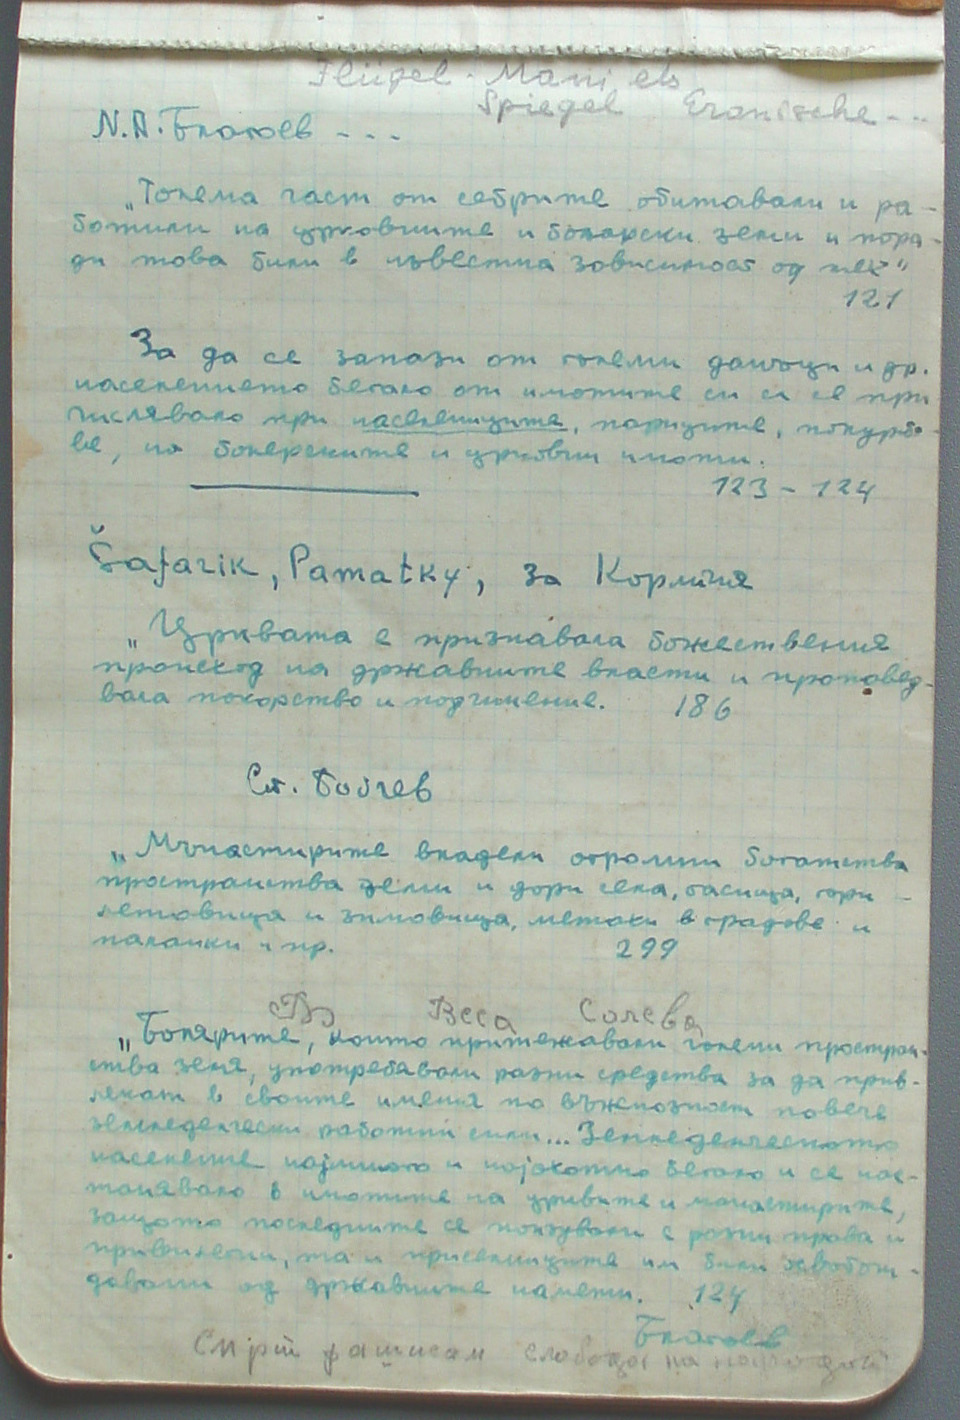 Flügel - Mani els
Spiegel Eranische - - -
N.П. Благоев - - -
„Голема част от себрите обитавали и ра-
ботили на црковните и болярски земи и пора-
ди това били в известна зависимост од нех“
121
За да се запази от големи данъци и др.
населението бегало от имотите си и се при
числявало при населниците, париците,
ве, на болерските и црковни имоти.
123 - 124
Šafarik, Pamatky, за Кормчия
„Црквата е признавала божествения
происход на државните власти и проповед-
вала покорство и подчинение. 186
Ст. Бобчев
„Мънастирите владели огромни богатства
пространства земи и дори села, пасища, гори -
летовища и зимовища, метоси в градове и
паланки и пр. 299
Веса Солева
„Болярите, които притежавали големи простран-
ства земя, употребявали разни средства за да прив-
лекат в своите имения по възможност повече
земледелчески работни сили... Земледелческото
население најмного и најохотно бегало и се нас-
танявало в имотите на црквите и манастирите,
защото последните се ползували с разни права и
привилегии, та и приселниците им били освобож-
давани од државните налети. 124
Благоев
Смрт фашизам слобода на народот